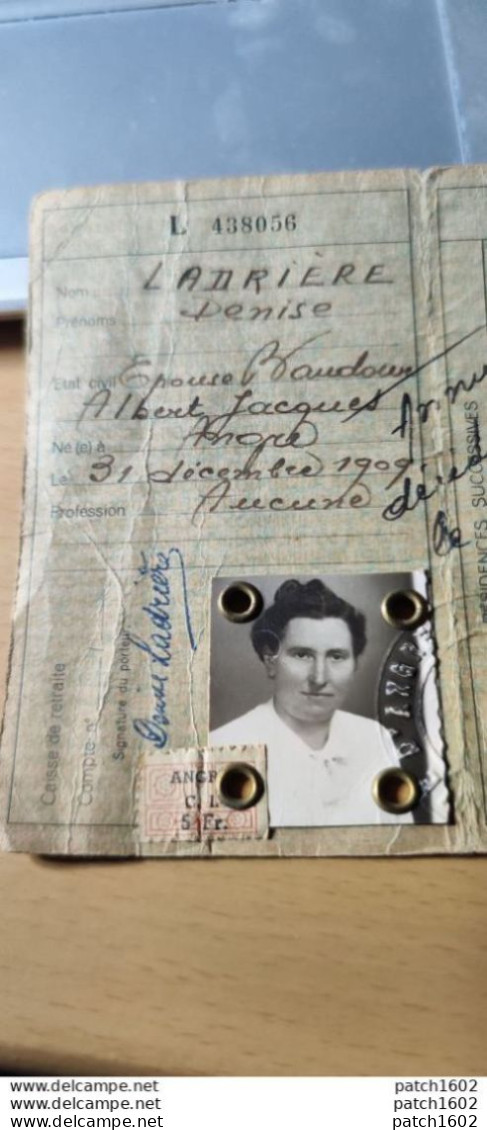 L 438056
Nom LADRIÈRE
Prénoms Denise
Etat civil Epouse Baudour
Albert Jacques
Né(e) à Angre
Le 31 décembre 1909
Profession Aucune
RÉSIDENCES SUCCESSIVES
Caisse de retraite
Compte n°
Signature du porteur
Denise Ladrière
ANGR
C. I.
5 Fr.
www.delcampe.net patch1602
www.delcampe.net patch1602
www.delcampe.net patch1602